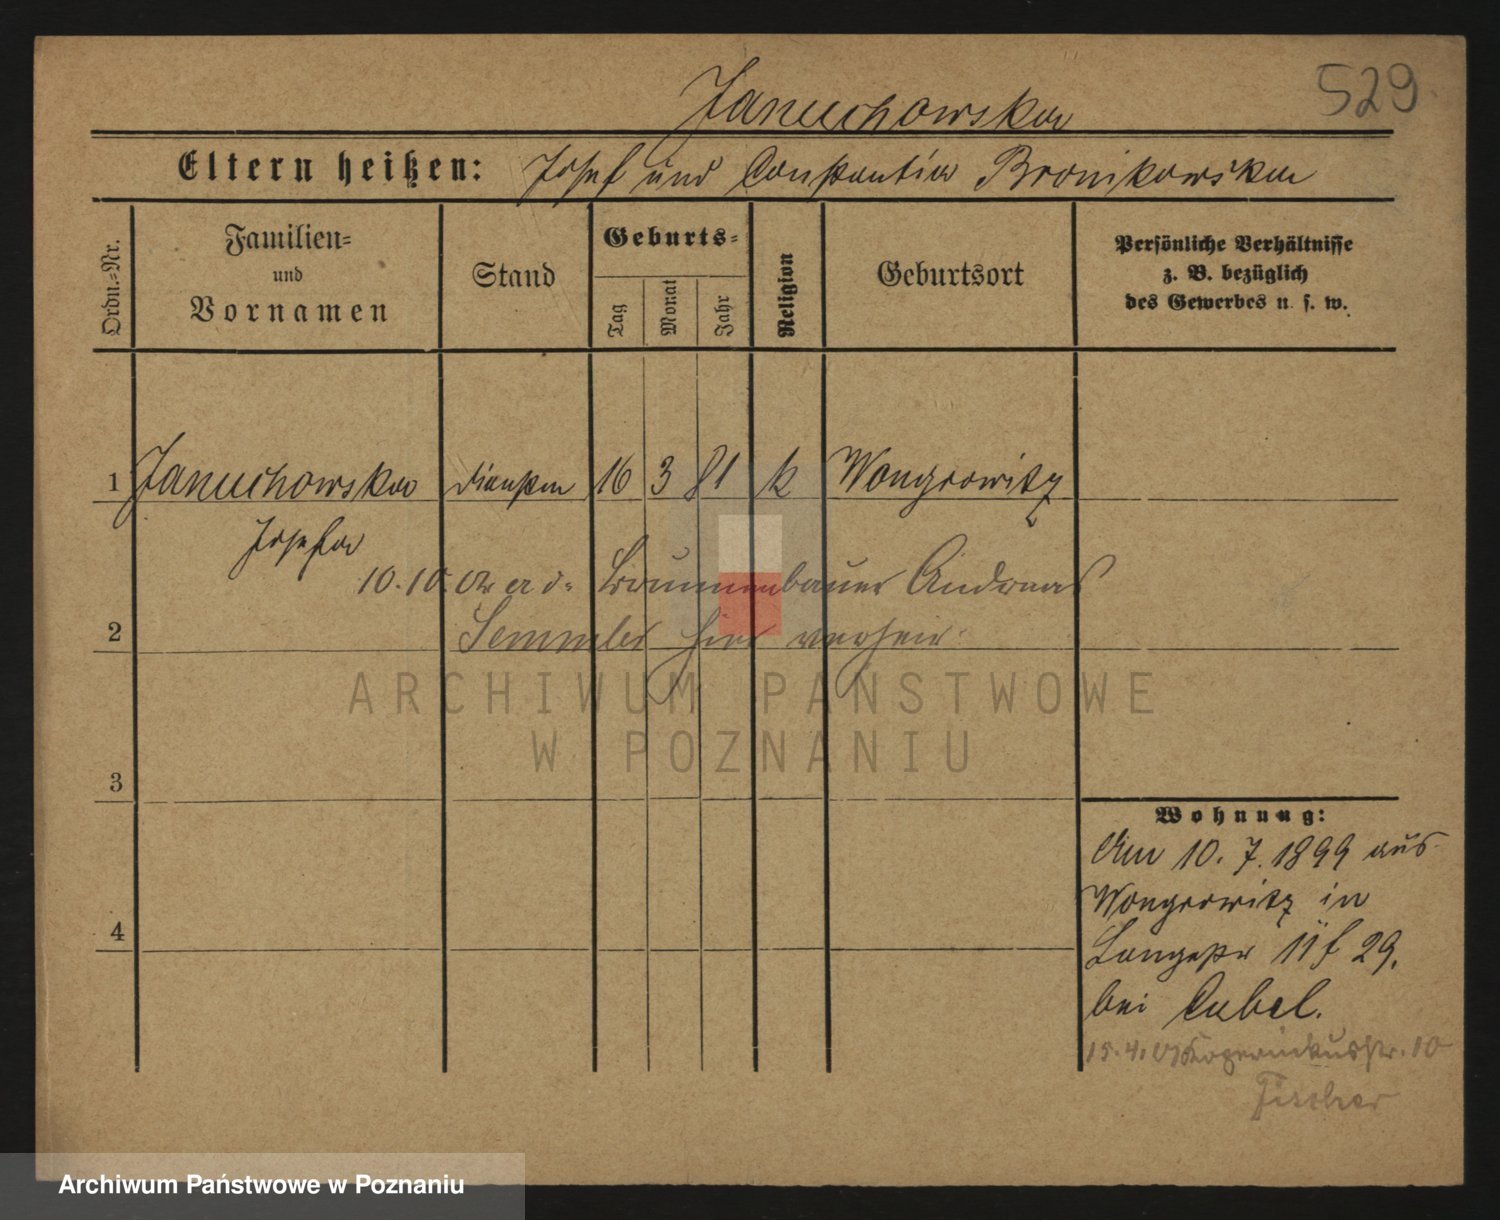 529
Januchowska
Eltern heißen: Josef und Constantia Bronikowska
Ordn.=Nr.
Familien=
und
Vornamen
Stand
Geburts=
Tag
Monat
Jahr
Religion
Geburtsort
Persönliche Verhältnisse
z. B. bezüglich
des Gewerbes u. s. w.
1 Januchowska 16 3 81 k Wongrowitz
Josefa
10.10. Brunnenbauer Andreas
2 Semmler hier verheir.
ARCHIWUM PAŃSTWOWE
W POZNANIU
3
4
Wohnung:
Am 10. 7. 1899 aus
Wongrowitz in
Langestr 11 29.
bei Cubel.
15.4. Kopernikusstr. 10
Fischer
Archiwum Państwowe w Poznaniu